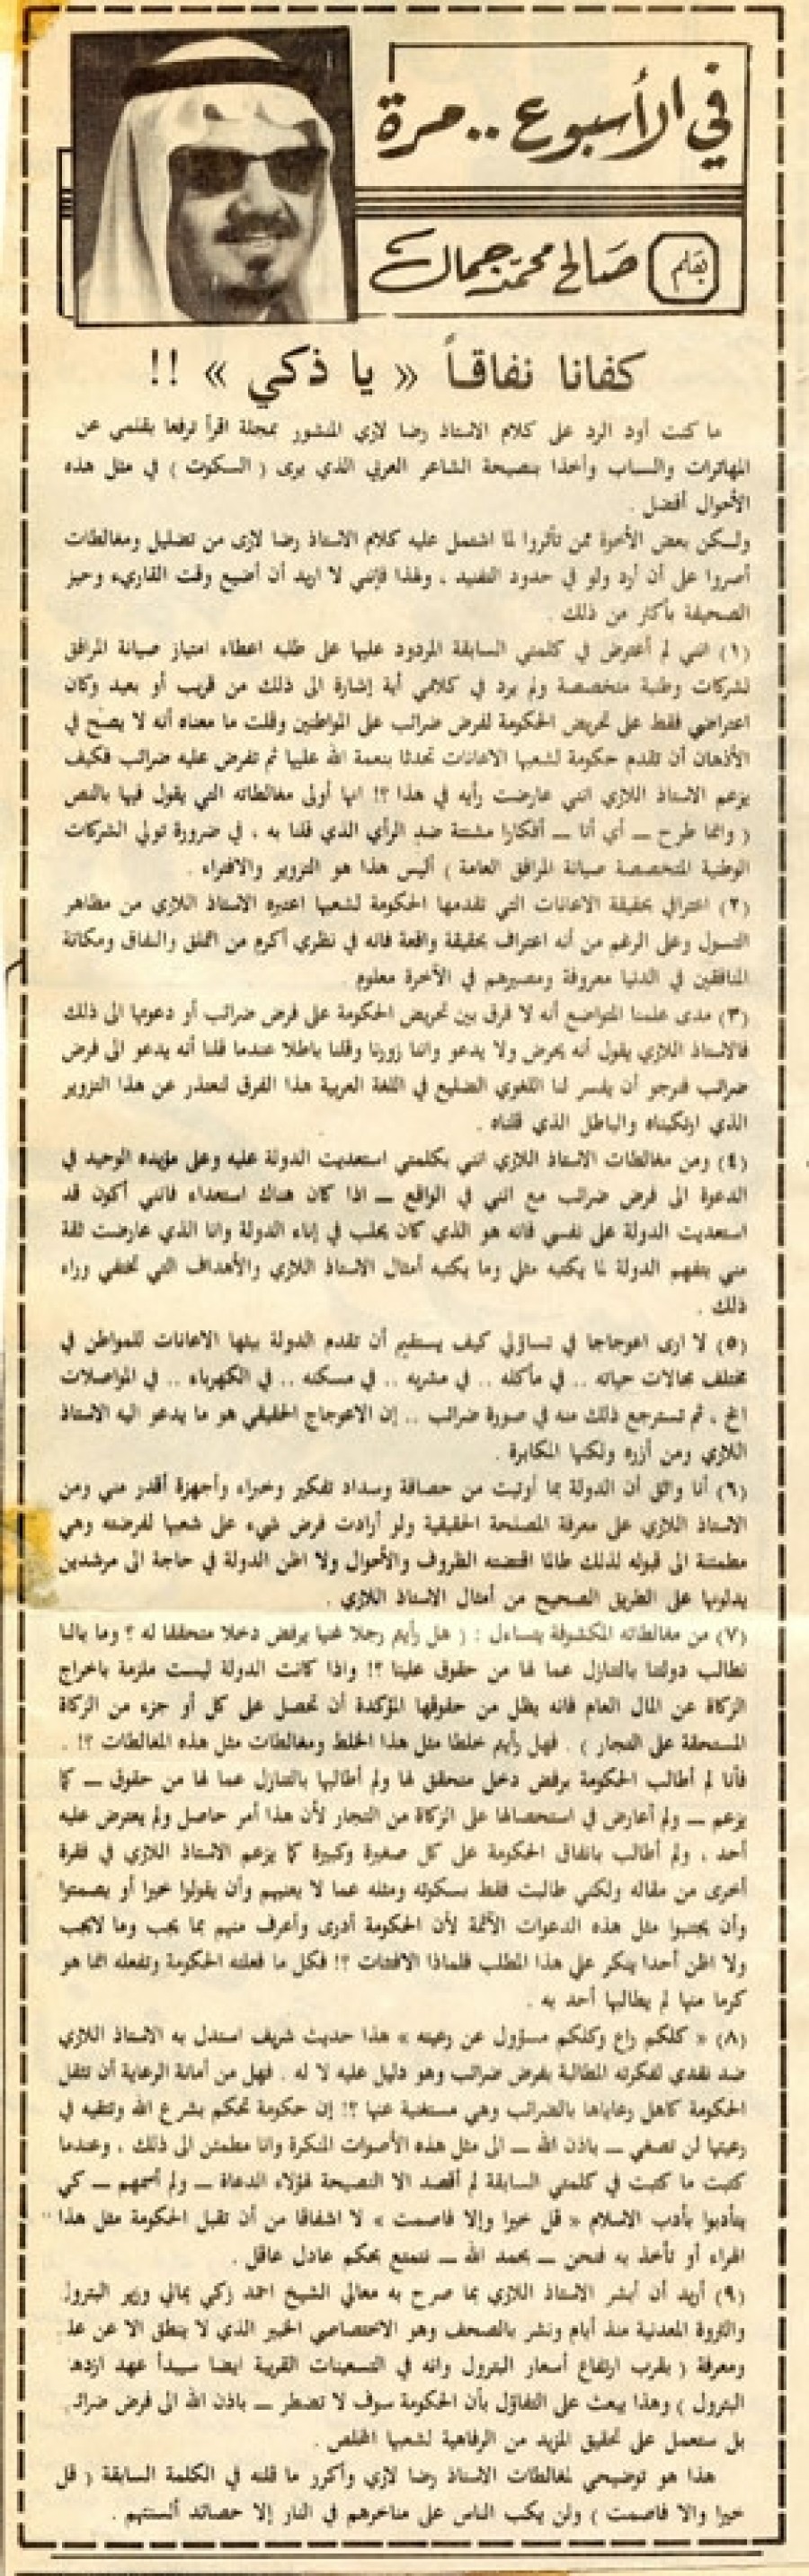 في الأسبوع .. مرة
بقلم صالح محمد جمال
كفانا نفاقاً « يا ذكي » !!
ما كنت أود الرد على كلام الاستاذ رضا لاري المنشور بمجلة اقرأ ترفعا بقلمي عن
المهاترات والسباب وأخذا بنصيحة الشاعر العربي الذي يرى ( السكوت ) في مثل هذه
الأحوال أفضل .
ولكن بعض الأخوة ممن تأثروا لما اشتمل عليه كلام الاستاذ رضا لارى من تضليل ومغالطات
أصروا على أن أرد ولو في حدود التفنيد ، ولهذا فإنني لا اريد أن أضيع وقت القاريء وحيز
الصحيفة بأكثر من ذلك .
(١) انني لم أعترض في كلمتي السابقة المردود عليها على طلبه اعطاء امتياز صيانة المرافق
لشركات وطنية متخصصة ولم يرد في كلامي أية إشارة الى ذلك من قريب أو بعيد وكان
اعتراضي فقط على تحريض الحكومة لفرض ضرائب على المواطنين وقلت ما معناه أنه لا يصح في
الأذهان أن تقدم حكومة لشعبها الاعانات تحدثا بنعمة الله عليها ثم تفرض عليه ضرائب فكيف
يزعم الاستاذ اللاري انني عارضت رأيه في هذا ؟! انها أولى مغالطاته التي يقول فيها بالنص
( وانما طرح ــ أي أنا ــ أفكارا مشتتة ضد الرأي الذي قلنا به ، في ضرورة تولي الشركات
الوطنية المتخصصة صيانة المرافق العامة ) أليس هذا هو التزوير والافتراء .
(٢) اعترافي بحقيقة الاعانات التي تقدمها الحكومة لشعبها اعتبره الاستاذ اللاري من مظاهر
التسول وعلى الرغم من أنه اعتراف بحقيقة واقعة فانه في نظري أكرم من التملق والنفاق ومكانة
المنافقين في الدنيا معروفة ومصيرهم في الآخرة معلوم .
(٣) مدى علمنا المتواضع أنه لا فرق بين تحريض الحكومة على فرض ضرائب أو دعوتها الى ذلك
فالاستاذ اللاري يقول أنه يحرض ولا يدعو واننا زورنا وقلنا باطلا عندما قلنا أنه يدعو الى فرض
ضرائب فنرجو أن يفسر لنا اللغوي الضليع في اللغة العربية هذا الفرق لنعتذر عن هذا التزوير
الذي ارتكبناه والباطل الذي قلناه .
(٤) ومن مغالطات الاستاذ اللاري انني بكلمتي استعديت الدولة عليه وعلى مؤيده الوحيد في
الدعوة الى فرض ضرائب مع انني في الواقع ــ اذا كان هناك استعداء فانني أكون قد
استعديت الدولة على نفسي فانه هو الذي كان يحلب في إناء الدولة وانا الذي عارضت ثقة
مني بتفهم الدولة لما يكتبه مثلي وما يكتبه أمثال الاستاذ اللاري والأهداف التي تختفي وراء
ذلك .
(٥) لا ارى اعوجاجا في تساؤلي كيف يستقيم أن تقدم الدولة بيتها الاعانات للمواطن في
مختلف مجالات حياته .. في مأكله .. في مشربه .. في مسكنه .. في الكهرباء .. في المواصلات
الخ ، ثم تسترجع ذلك منه في صورة ضرائب .. إن الاعوجاج الحقيقي هو ما يدعو اليه الاستاذ
اللاري ومن أزره ولكنها المكابرة .
(٦) أنا واثق أن الدولة بما أوتيت من حصافة وسداد تفكير وخبراء وأجهزة أقدر مني ومن
الاستاذ اللاري على معرفة المصلحة الحقيقية ولو أرادت فرض شيء على شعبها لفرضته وهي
مطمئنة الى قبوله لذلك طالما اقتضته الظروف والأحوال ولا اظن الدولة في حاجة الى مرشدين
يدلونها على الطريق الصحيح من أمثال الاستاذ اللاري .
(٧) من مغالطاته المكشوفة يتساءل : ( هل رأيتم رجلا غنيا يرفض دخلا متحققا له ؟ وما بالنا
نطالب دولتنا بالتنازل عما لها من حقوق علينا ؟! واذا كانت الدولة ليست ملزمة باخراج
الزكاة عن المال العام فانه يظل من حقوقها المؤكدة أن تحصل على كل أو جزء من الزكاة
المستحقة على التجار ) . فهل رأيتم خلطا مثل هذا الخلط ومغالطات مثل هذه المغالطات ؟! .
فأنا لم أطالب الحكومة برفض دخل متحقق لها ولم أطالبها بالتنازل عما لها من حقوق ــ كما
يزعم ــ ولم أعارض في استحصالها على الزكاة من التجار لأن هذا أمر حاصل ولم يعترض عليه
أحد ، ولم أطالب بانفاق الحكومة على كل صغيرة وكبيرة كما يزعم الاستاذ اللاري في فقرة
أخرى من مقاله ولكني طالبت فقط بسكوته ومثله عما لا يعنيهم وأن يقولوا خيرا أو يصمتوا
وأن يجتنبوا مثل هذه الدعوات الآثمة لأن الحكومة أدرى وأعرف منهم بما يجب وما لايجب
ولا اظن أحدا ينكر علي هذا المطلب فلماذا الافتئات ؟! فكل ما فعلته الحكومة وتفعله انما هو
كرما منها لم يطالبها أحد به .
(٨) « كلكم راع وكلكم مسؤول عن رعيته » هذا حديث شريف استدل به الاستاذ اللاري
ضد نقدي لفكرته المطالبة بفرض ضرائب وهو دليل عليه لا له . فهل من أمانة الرعاية أن تثقل
الحكومة كاهل رعاياها بالضرائب وهي مستغنية عنها ؟! إن حكومة تحكم بشرع الله وتتقيه في
رعيتها لن تصغي ــ باذن الله ــ الى مثل هذه الأصوات المنكرة وانا مطمئن الى ذلك ، وعندما
كتبت ما كتبت في كلمتي السابقة لم أقصد الا النصيحة لهؤلاء الدعاة ــ ولم أسمهم ــ كي
يتأدبوا بأدب الاسلام « قل خيرا وإلا فاصمت » لا اشفاقا من أن تقبل الحكومة مثل هذا
الهراء أو تأخذ به فنحن ــ بحمد الله ــ نتمتع بحكم عادل عاقل .
(٩) أريد أن أبشر الاستاذ اللاري بما صرح به معالي الشيخ احمد زكي يماني وزير البترول
والثروة المعدنية منذ أيام ونشر بالصحف وهو الاختصاصي الخبير الذي لا ينطق الا عن علم
ومعرفة ( بقرب ارتفاع أسعار البترول وانه في التسعينات القريبة ايضا سيبدأ عهد ازدهـ
البترول ) وهذا يبعث على التفاؤل بأن الحكومة سوف لا تضطر ــ باذن الله الى فرض ضرائـ
بل ستعمل على تحقيق المزيد من الرفاهية لشعبها المخلص .
هذا هو توضيحي لمغالطات الاستاذ رضا لاري وأكرر ما قلته في الكلمة السابقة ( قل
خيرا والا فاصمت ) ولن يكب الناس على مناخرهم في النار إلا حصائد ألسنتهم .